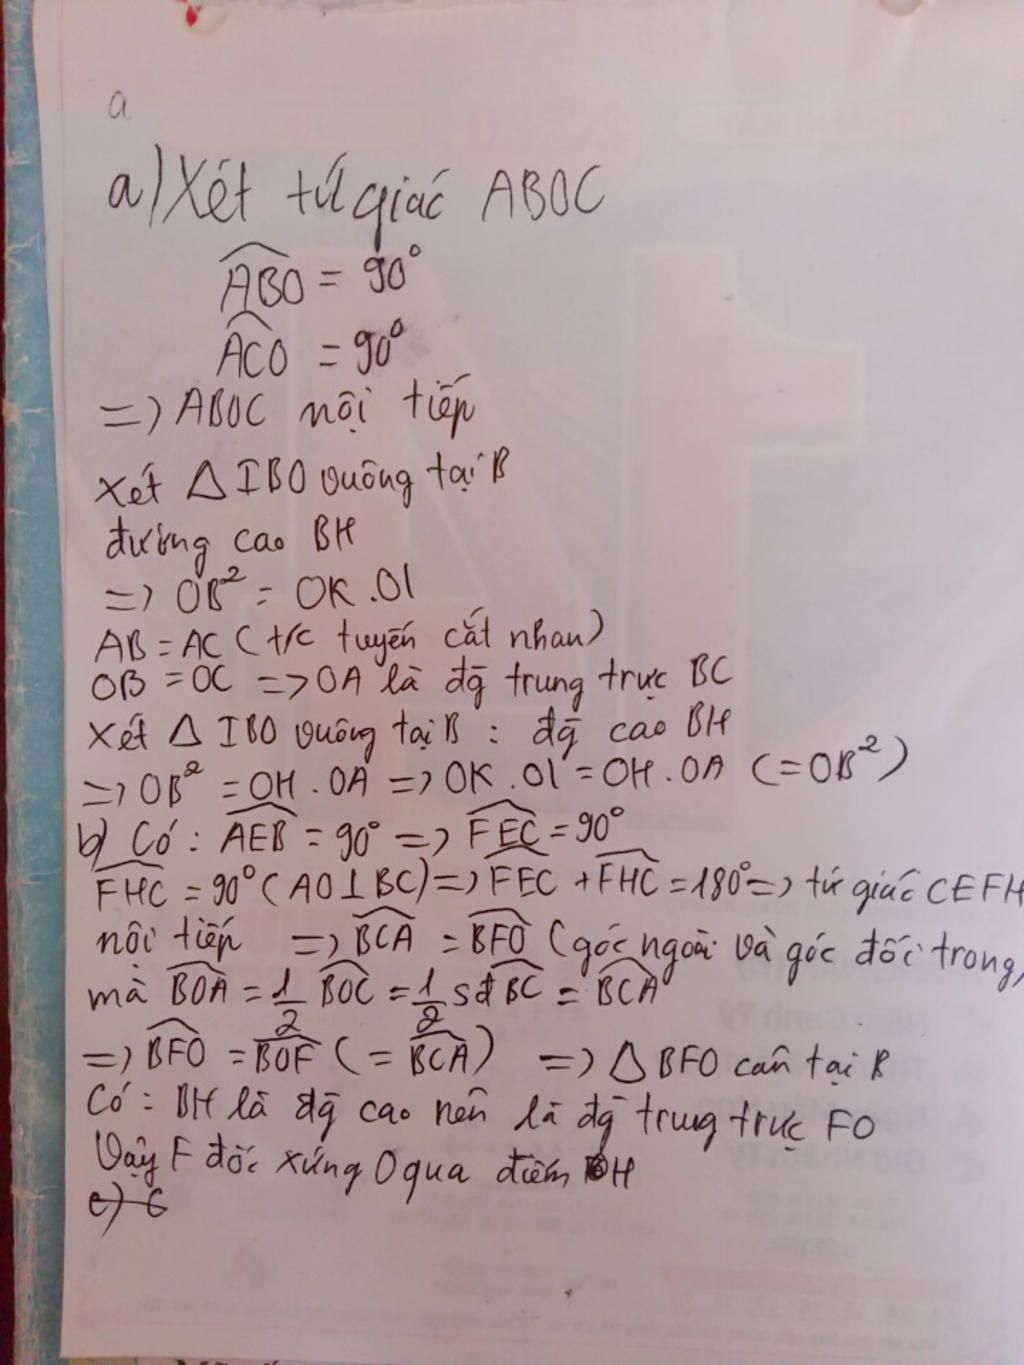 a
a) Xét tứ giác ABOC
ABO = 90°
ACO = 90°
=> ABOC nội tiếp
Xét Δ IBO vuông tại B
đường cao BH
=> OB² = OK . OI
AB = AC ( t/c tuyến cắt nhau)
OB = OC => OA là đg trung trực BC
Xét Δ IBO vuông tại B : đg cao BH
=> OB² = OH . OA => OK . OI = OH . OA ( = OB²)
b) Có : AEB = 90° => FEC = 90°
FHC = 90° ( AO ⊥ BC) => FEC + FHC = 180° => tứ giác CEFH
nội tiếp => BCA = BFO ( góc ngoài và góc đối trong)
mà BOA = 1/2 BOC = 1/2 sđ BC = BCA
=> BFO = BOF ( = BCA ) => Δ BFO cân tại B
Có : BH là đg cao nên là đg trung trực FO
Vậy F đốc xứng O qua điểm H
c) C